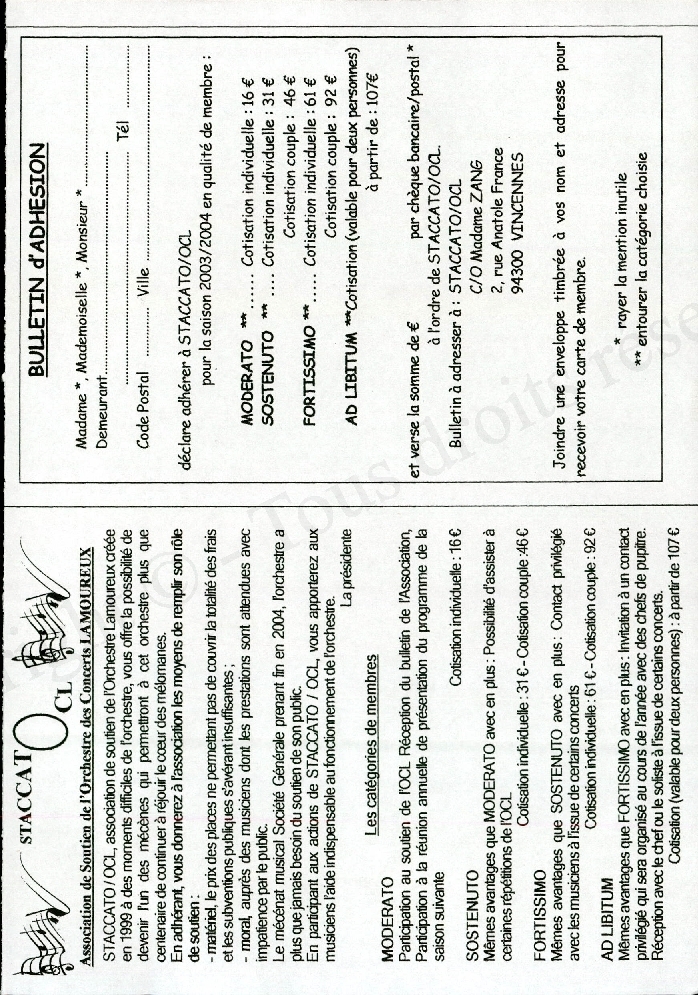 STACCATO OCL
Association de Soutien de l'Orchestre des Concerts LAMOUREUX
STACCATO / OCL, association de soutien de l'Orchestre Lamoureux créée
en 1999 à des moments difficiles de l'orchestre, vous offre la possibilité de
devenir l'un des mécènes qui permettront à cet orchestre plus que
centenaire de continuer à réjouir le cœur des mélomanes.
En adhérant, vous donnerez à l'association les moyens de remplir son rôle
de soutien :
- matériel, le prix des places ne permettant pas de couvrir la totalité des frais
et les subventions publiques s'avérant insuffisantes ;
- moral, auprès des musiciens dont les prestations sont attendues avec
impatience par le public.
Le mécénat musical Société Générale prenant fin en 2004, l'orchestre a
plus que jamais besoin du soutien de son public.
En participant aux actions de STACCATO / OCL, vous apporterez aux
musiciens l'aide indispensable au fonctionnement de l'orchestre.
La présidente
Les catégories de membres
MODERATO
Participation au soutien de l'OCL Réception du bulletin de l'Association,
Participation à la réunion annuelle de présentation du programme de la
saison suivante
Cotisation individuelle : 16 €
SOSTENUTO
Mêmes avantages que MODERATO avec en plus : Possibilité d'assister à
certaines répétitions de l'OCL
Cotisation individuelle : 31 € - Cotisation couple :46 €
FORTISSIMO
Mêmes avantages que SOSTENUTO avec en plus : Contact privilégié
avec les musiciens à l'issue de certains concerts
Cotisation individuelle : 61 € - Cotisation couple : 92 €
AD LIBITUM
Mêmes avantages que FORTISSIMO avec en plus : Invitation à un contact
privilégié qui sera organisé au cours de l'année avec des chefs de pupitre.
Réception avec le chef ou le soliste à l'issue de certains concerts.
Cotisation (valable pour deux personnes) : à partir de 107 €
BULLETIN d'ADHESION
Madame *, Mademoiselle *, Monsieur * ..............................
Demeurant..................................................
.................................................. Tél ....................
Code Postal ............ Ville ........................................
déclare adhérer à STACCATO/OCL
pour la saison 2003/2004 en qualité de membre :
MODERATO ** ...... Cotisation individuelle : 16 €
SOSTENUTO ** .... Cotisation individuelle : 31 €
Cotisation couple : 46 €
FORTISSIMO ** ..... Cotisation individuelle : 61 €
Cotisation couple : 92 €
AD LIBITUM **Cotisation (valable pour deux personnes)
à partir de : 107€
et verse la somme de € par chèque bancaire/postal *
à l'ordre de STACCATO/OCL.
Bulletin à adresser à : STACCATO/OCL
C/O Madame ZANG
2, rue Anatole France
94300 VINCENNES
Joindre une enveloppe timbrée à vos nom et adresse pour
recevoir votre carte de membre.
* rayer la mention inutile
** entourer la catégorie choisie
© - Tous droits rése